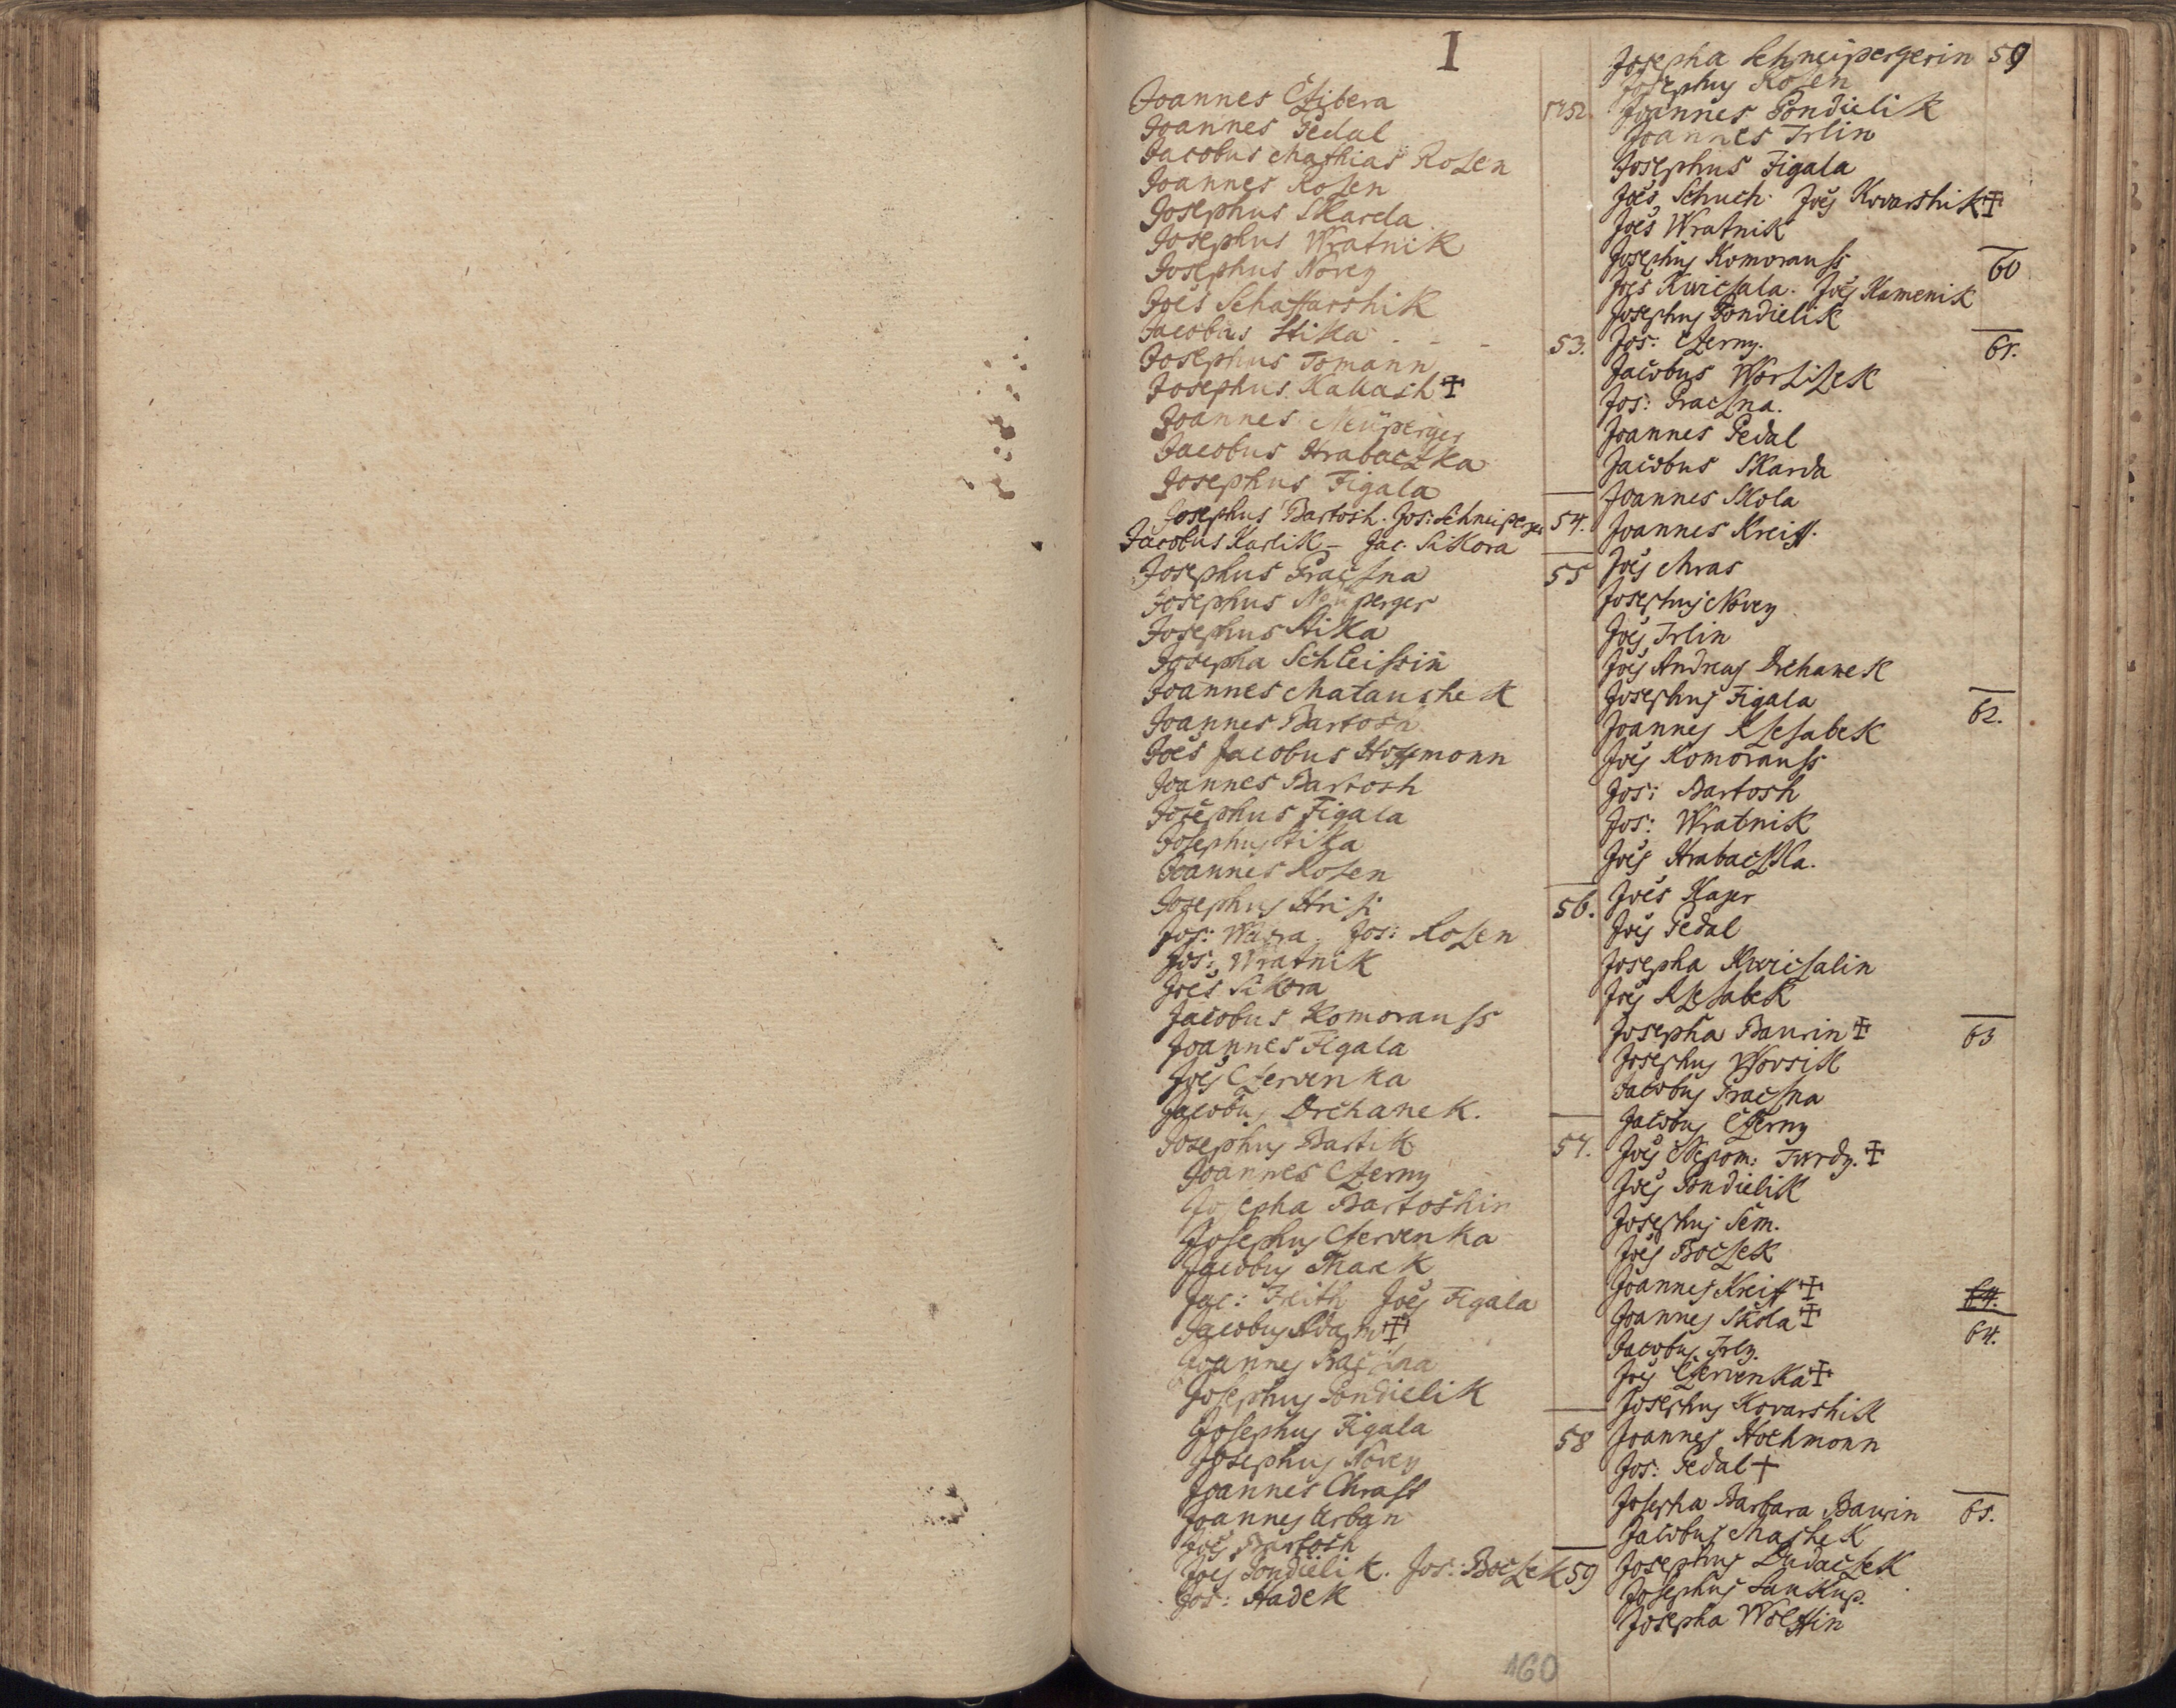 I
Joannes Czibera 1752.
Joannes Pedal
Jacobus Mathias Rosen
Joannes Rosen
Josephus Skarda
Josephus Wratnik
Josephus Novey
Joes Schaffarshik
Jacobus Stika - - - 53.
Josephus Tomann
Josephus Kallash ✝
Joannes Neüperger
Jacobus Hrabaczka
Josephus Figala
Josephus Bartosh. Jos: Schneiperger 54.
Jacobus Karlik - Jac. Sikora
Josephus Praczna 55
Josephus Neüperger
Josephus Stika
Josepha Schleissin
Joannes Mataushek
Joannes Bartosh
Joes Jacobus Hoffmonn
Joannes Bartosh
Josephus Figala
Josephus Stika
Joannes Rosen
Josephus 56.
Jos: Wawra. Jos: Rosen
Jos: Wratnik
Joes Sikora
Jacobus Komorauss
Joannes Figala
Joes Czervenka
Jacobus Drchanek.
Josephus Bartik 57.
Joannes Czerny
Josepha Bartoshin
Josephus Czervenka
Jacobus Marek
Jac: Joes Figala
Jacobus Adam ✝
Joannes Praczna
Josephus Pondielik
Josephus Figala 58
Josephus Novey
Joannes Chrast
Joannes Urban
Joes Bartosh
Joes Pondielik. Jos: Boczek 59
Jos: Hadek
Josepha Schneipergerin 59
Josephus Rosen
Joannes Pondielik
Joannes Irlin
Josephus Figala
Joes Schuch. Joes Kovarshik ✝
Joes Wratnik
Josephus Komorauss 60
Joes Kwiczala. Joes Kamenik
Josephus Pondielik
Jos: Czerny. 61.
Jacobus Worliczek
Jos: Praczna.
Joannes Pedal
Jacobus Skarda
Joannes Skola
Joannes Kreiff.
Joes Mras
Josephus Novey
Joes Irlin
Joes Andreas Drchanek
Josephus Figala 62.
Joannes Rzesabek
Joes Komorauss
Jos: Bartosh
Jos: Wratnik
Joes Hrabaczka.
Joes Kayer
Joes Pedal
Josepha Kwiczalin
Joes Rzesabek
Josepha Baurin ✝ 63
Josephus Worsik
Jacobus Praczna
Jacobus Czerny
Joes Nepom: Twrdy. ✝
Joes Pondielik
Josephus Sem.
Joes Boczek
Joannes Kreiff ✝ 64.
Joannes Skola ✝ 64.
Jacobus Irly.
Joes Czervenka ✝
Josephus Kovarshik
Joannes Hochmonn
Jos: Pedal +
Josepha Barbara Baurin 65.
Jacobus Mashek
Josephus Dudaczek
Josephus Saukup.
Josepha Wolffin
160